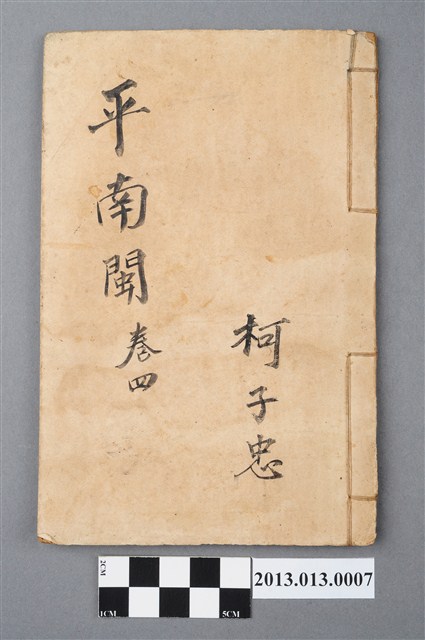 柯子忠
平南閩 卷四
2CM
1CM
5CM
2013.013.0007